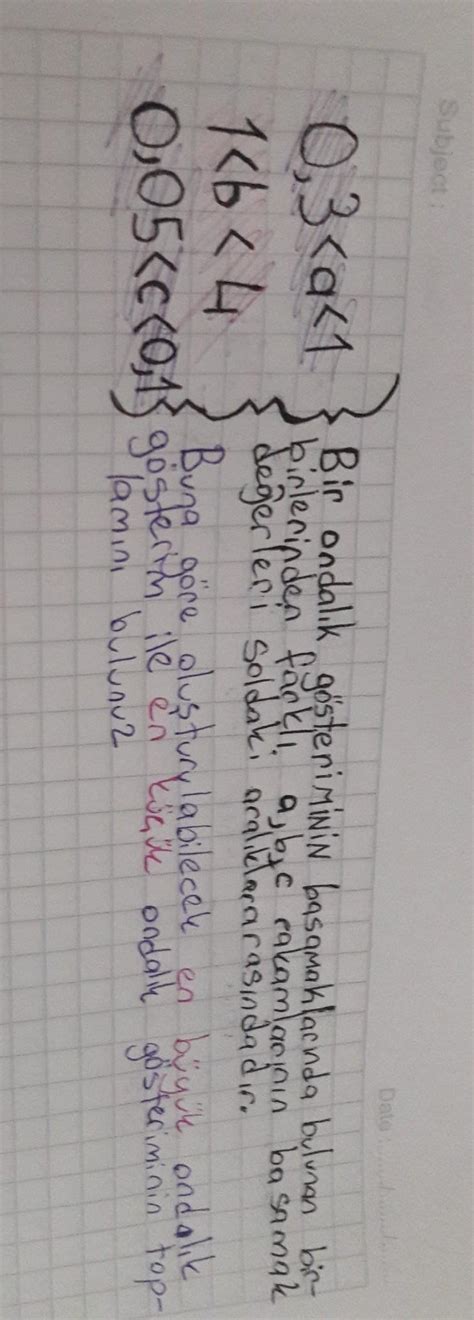 Subject :
Date :
0,3<a<1
1<b<4
0,05<c<0,1
Bir ondalık gösteriminin basamaklarında bulunan bir-
birlerinden farklı a,b,c rakamlarının basamak
değerleri soldaki aralıklar arasındadır.
Buna göre oluşturulabilecek en büyük ondalık
gösterim ile en küçük ondalık gösteriminin top-
lamını bulunuz